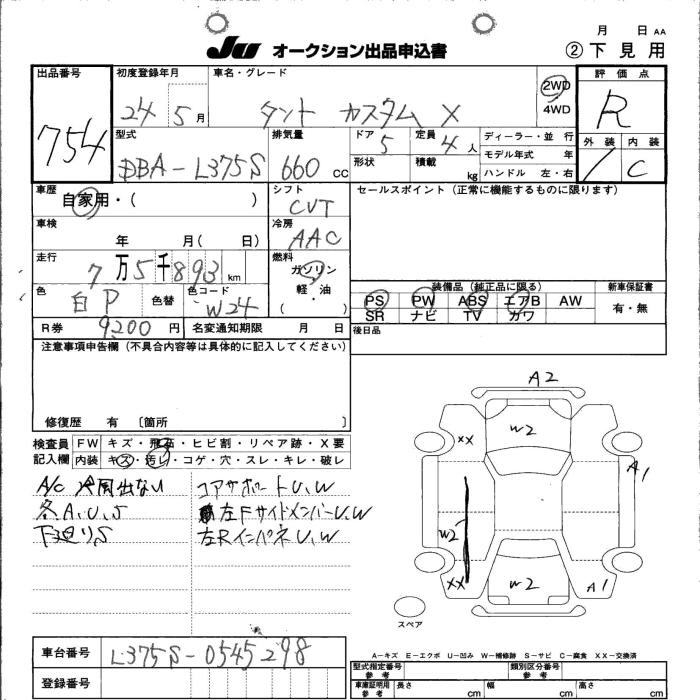 月 日 AA
JU オークション出品申込書 ②下見用
出品番号 初度登録年月 車名・グレード 評価点
754 24 5月 タント カスタム X 2WD 4WD R
型式 排気量 ドア 5 定員 4人 ディーラー・並行 外装 内装
DBA-L375S 660 cc 形状 積載 kg モデル年式 年 ハンドル 左・右 1 C
車歴 シフト セールスポイント (正常に機能するものに限ります)
自家用・( ) CVT
車検 冷房
年 月( 日) AAC
走行 燃料
7万5千893 km ガソリン 軽・油 ( )
装備品 (純正品に限る) 新車保証書
色 色替 色コード PS PW ABS エアB AW 有・無
白P W24 SR ナビ TV カワ
R券 9200円 名変通知期限 月 日 後日品
注意事項申告欄 (不具合内容等は具体的に記入してください)
修復歴 有 〔箇所 〕
検査員 FW キズ・飛石・ヒビ割・リペア跡・X要
記入欄 内装 キズ・汚レ・コゲ・穴・スレ・キレ・破レ
A/C 冷風出ない コアサポートU,W
各A,U,S 左FサイドメンバーU,W
下廻りS 左RインパネU,W
A2
W2
XX
A1
W2
XX W2 A1
スペア
A-キズ E-エクボ U-凹み W-補修跡 S-サビ C-腐食 XX-交換済
車台番号 L375S-0545298
登録番号
型式指定番号 参考 類別区分番号 参考
車庫証明用 参考 長さ cm 幅 cm 高さ cm